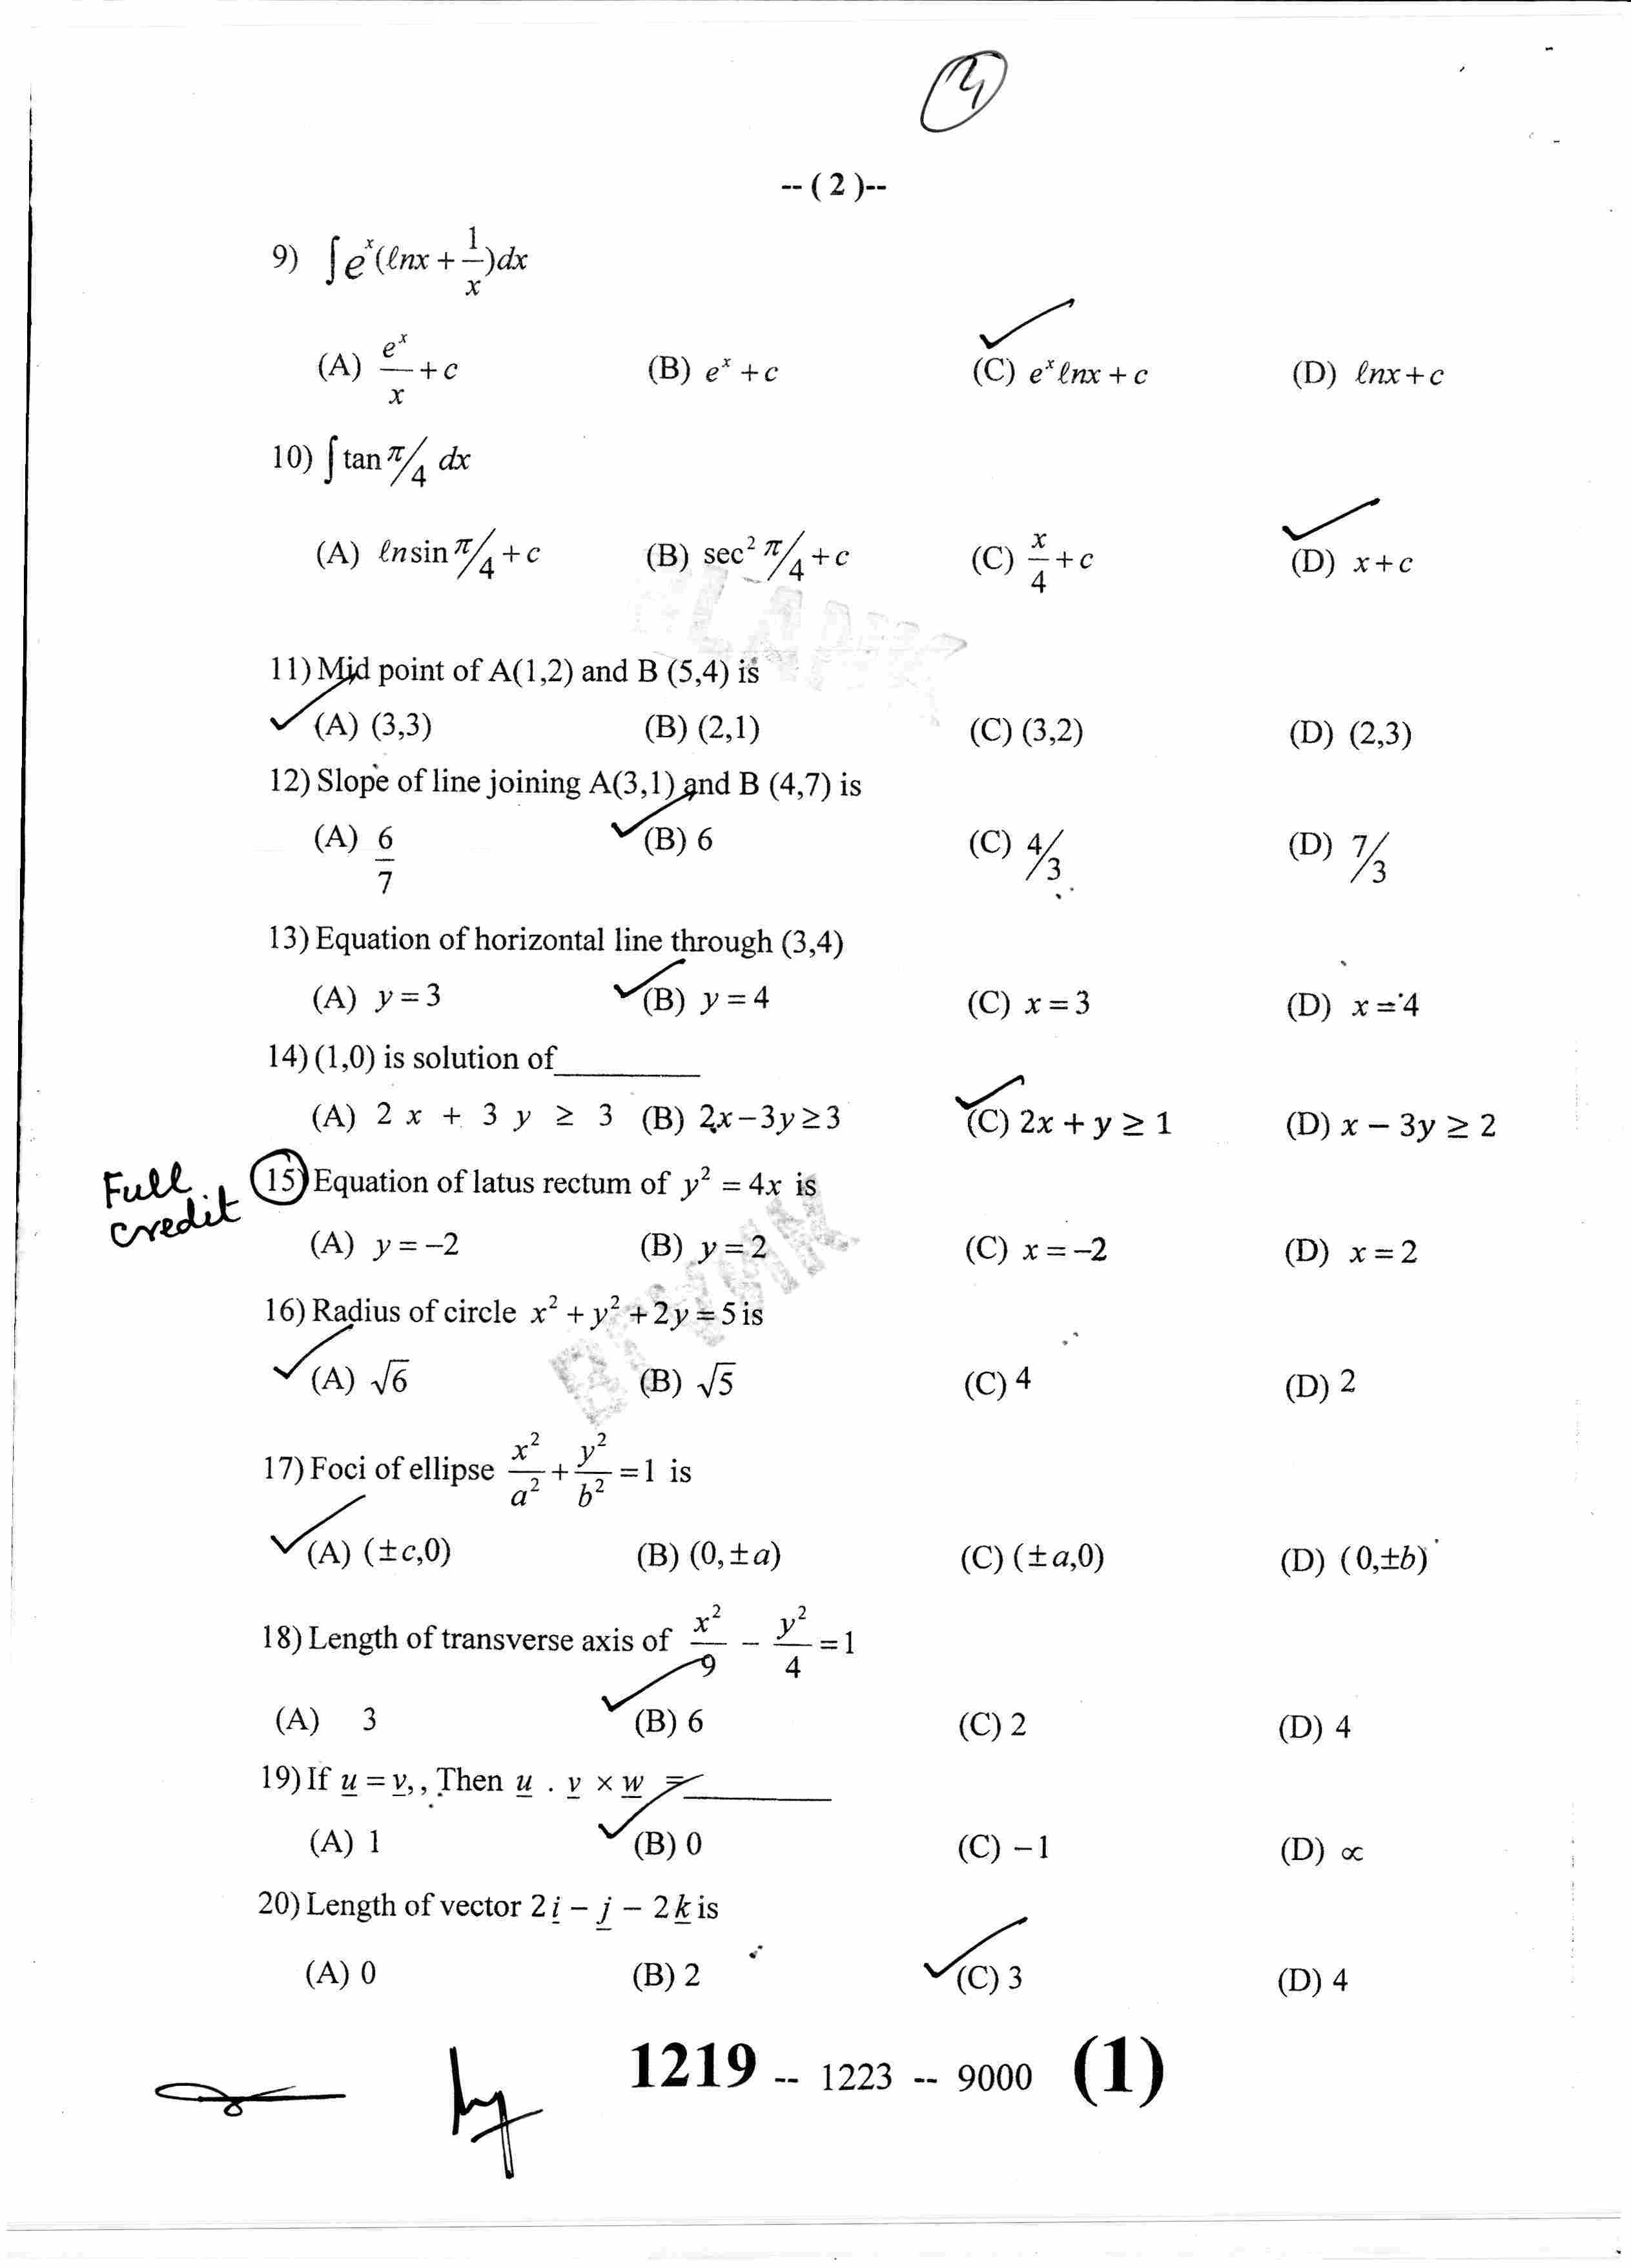 --(2)--
9) ∫eˣ(ℓnx + 1/x)dx
(A) eˣ/x + c (B) eˣ + c (C) eˣℓnx + c (D) ℓnx + c
10) ∫tan π/4 dx
(A) ℓn sin π/4 + c (B) sec² π/4 + c (C) x/4 + c (D) x + c
11) Mid point of A(1,2) and B (5,4) is
(A) (3,3) (B) (2,1) (C) (3,2) (D) (2,3)
12) Slope of line joining A(3,1) and B (4,7) is
(A) 6/7 (B) 6 (C) 4/3 (D) 7/3
13) Equation of horizontal line through (3,4)
(A) y = 3 (B) y = 4 (C) x = 3 (D) x = 4
14) (1,0) is solution of________
(A) 2 x + 3 y ≥ 3 (B) 2x−3y≥3 (C) 2x + y ≥ 1 (D) x − 3y ≥ 2
Full credit 15) Equation of latus rectum of y² = 4x is
(A) y = −2 (B) y = 2 (C) x = −2 (D) x = 2
16) Radius of circle x² + y² + 2y = 5 is
(A) √6 (B) √5 (C) 4 (D) 2
17) Foci of ellipse x²/a² + y²/b² = 1 is
(A) (±c,0) (B) (0,±a) (C) (±a,0) (D) (0,±b)
18) Length of transverse axis of x²/9 − y²/4 = 1
(A) 3 (B) 6 (C) 2 (D) 4
19) If u = v, , Then u . v × w =________
(A) 1 (B) 0 (C) −1 (D) ∝
20) Length of vector 2 i − j − 2 k is
(A) 0 (B) 2 (C) 3 (D) 4
1219 -- 1223 -- 9000 (1)